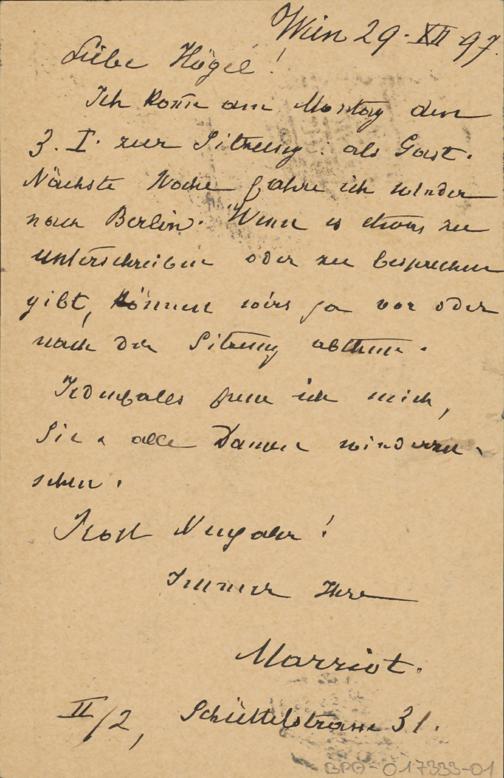 Wien 29. XII 97.
Liebe Högel!
Ich komme am Montag den
3. I. zur Sitzung als Gast.
Nächste Woche fahre ich wieder
nach Berlin. Wenn es etwas zu
unterschreiben oder zu besprechen
gibt, können wirs ja vor oder
nach der Sitzung abthun.
Jedenfalls freue ich mich,
Sie & alle Damen wiederzu-
sehen.
Prost Neujahr!
Immer Ihre
Marriot.
II/2, Schüttelstrasse 31.
BPA-017333-01